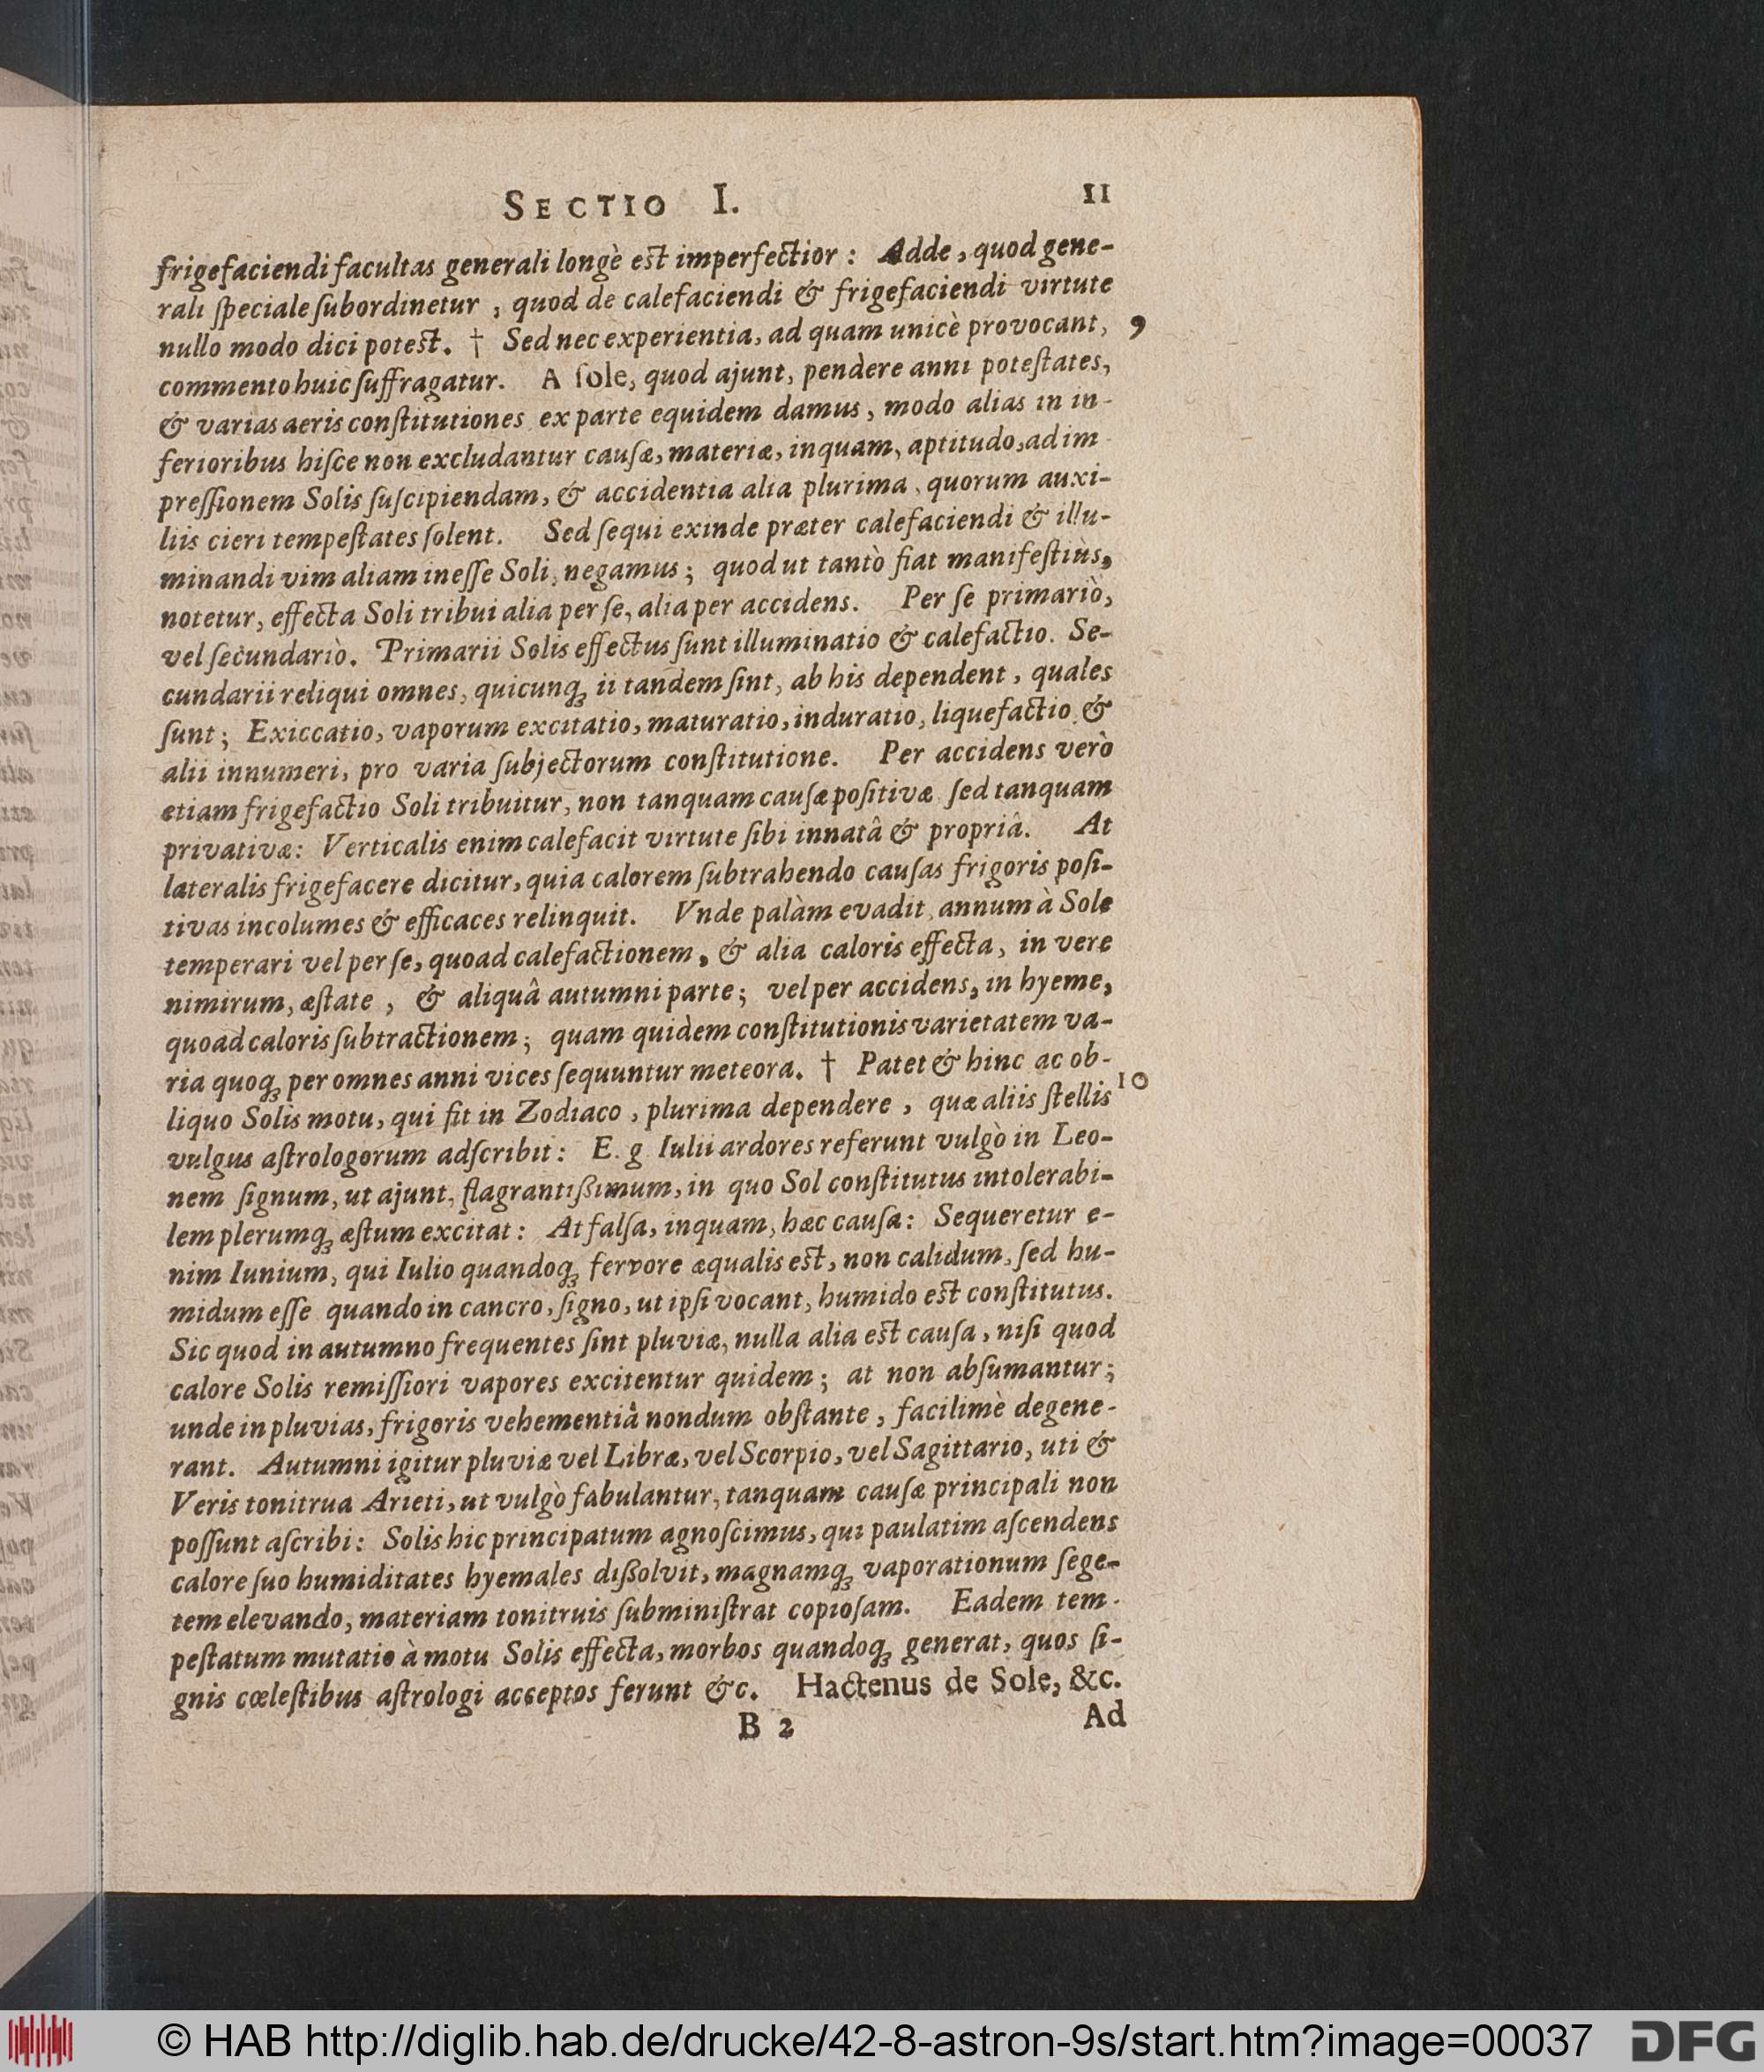 SECTIO I. 11
frigefaciendi facultas generali longè est imperfectior: Adde, quod gene-
rali ſpeciale ſubordinetur, quod de calefaciendi & frigefaciendi virtute
nullo modo dici potest. † Sed nec experientia, ad quam unicè provocant, 9
commento huic ſuffragatur. A ſole, quod ajunt, pendère anni poteſtates,
& varias aeris conſtitutiones ex parte equidem damus, modo alias in in-
ferioribus hiſce non excludantur cauſæ, materiæ, inquam, aptitudo, ad im-
preſſionem Solis ſuſcipiendam, & accidentia alia plurima, quorum auxi-
liis cieri tempeſtates ſolent. Sed ſequi exinde præter calefaciendi & illu-
minandi vim aliam ineſſe Soli, negamus; quod ut tantò fiat manifeſtiùs,
notetur, effecta Soli tribui alia per ſe, alia per accidens. Per ſe primariò,
vel ſecundariò. Primarii Solis effectus ſunt illuminatio & calefactio. Se-
cundarii reliqui omnes, quicunqꝫ ii tandem ſint, ab his dependent, quales
ſunt; Exiccatio, vaporum excitatio, maturatio, induratio, liquefactio &
alii innumeri, pro varia ſubjectorum conſtitutione. Per accidens verò
etiam frigefactio Soli tribuitur, non tanquam cauſæ poſitivæ ſed tanquam
privativæ: Verticalis enim calefacit virtute ſibi innatâ & propriâ. At
lateralis frigefacere dicitur, quia calorem ſubtrahendo cauſas frigoris poſi-
tivas incolumes & efficaces relinquit. Vnde palàm evadit, annum à Sole
temperari vel per ſe, quoad calefactionem, & alia caloris effecta, in vere
nimirum, æſtate, & aliquâ autumni parte; vel per accidens, in hyeme,
quoad caloris ſubtractionem; quam quidem conſtitutionis varietatem va-
ria quoqꝫ per omnes anni vices ſequuntur meteora. † Patet & hinc ac ob-
liquo Solis motu, qui fit in Zodiaco, plurima dependere, quæ aliis ſtellis 10
vulgus aſtrologorum adſcribit: E. g Iulii ardores referunt vulgò in Leo-
nem ſignum, ut ajunt, flagrantiſsimum, in quo Sol conſtitutus intolerabi-
lem plerumqꝫ æſtum excitat: At falſa, inquam, hæc cauſa: Sequeretur e-
nim Iunium, qui Iulio quandoqꝫ fervore æqualis est, non calidum, ſed hu-
midum eſſe quando in cancro, ſigno, ut ipſi vocant, humido est conſtitutus.
Sic quod in autumno frequentes ſint pluviæ, nulla alia est cauſa, niſi quod
calore Solis remiſſiori vapores excitentur quidem; at non abſumantur;
unde in pluvias, frigoris vehementiâ nondum obſtante, facilimè degene-
rant. Autumni igitur pluviæ vel Libræ, vel Scorpio, vel Sagittario, uti &
Veris tonitrua Arieti, ut vulgò fabulantur, tanquam cauſæ principali non
poſſunt aſcribi: Solis hic principatum agnoſcimus, qui paulatim aſcendens
calore ſuo humiditates hyemales diſsolvit, magnamqꝫ vaporationum ſege-
tem elevando, materiam tonitruis ſubminiſtrat copioſam. Eadem tem-
peſtatum mutatio à motu Solis effecta, morbos quandoqꝫ generat, quos ſi-
gnis cœleſtibus aſtrologi acceptos ferunt &c. Hactenus de Sole, &c.
B 2 Ad
© HAB http://diglib.hab.de/drucke/42-8-astron-9s/start.htm?image=00037 DFG